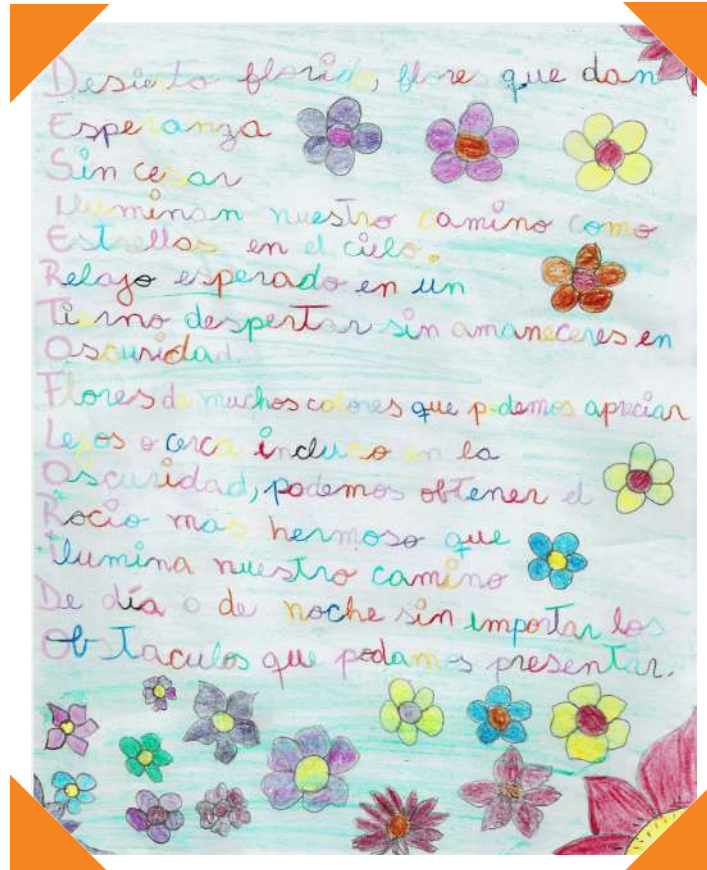 Desierto florido, flores que dan
Esperanza
Sin cesar
Iluminan nuestro camino como
Estrellas en el cielo.
Relajo esperado en un
Tierno despertar sin amaneceres en
Oscuridad.
Flores de muchos colores que podemos apreciar
Lejos o cerca incluso en la
Oscuridad, podemos obtener el
Rocio mas hermoso que
ilumina nuestro camino
De día o de noche sin importar los
Obstaculos que podamos presentar.